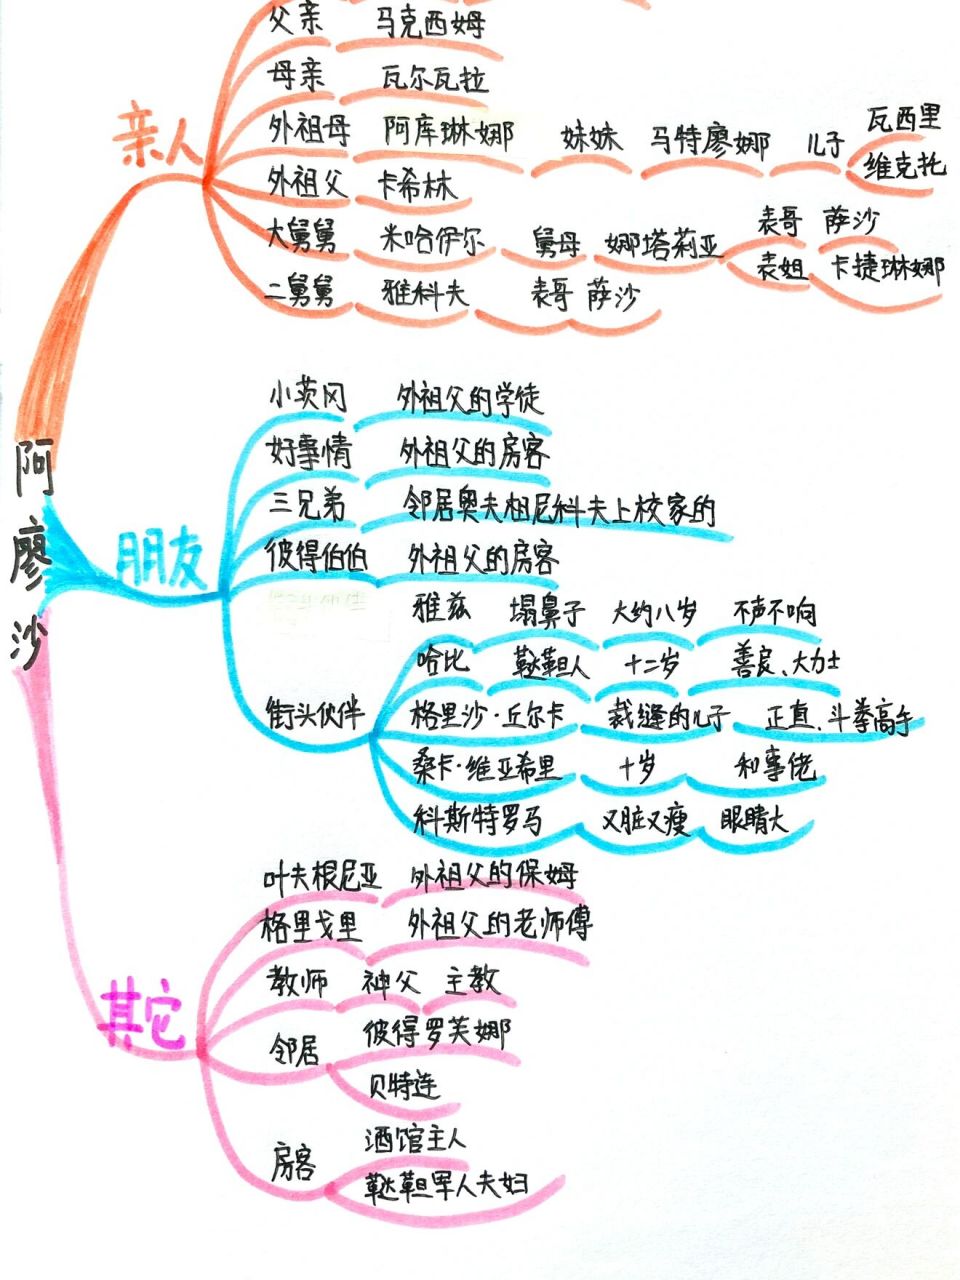 父亲 马克西姆
母亲 瓦尔瓦拉
外祖母 阿库琳娜 妹妹 马特廖娜 儿子 瓦西里
维克托
外祖父 卡希林
大舅舅 米哈伊尔 舅母 娜塔莉亚 表哥 萨沙
表姐 卡捷琳娜
二舅舅 雅科夫 表哥 萨沙
亲人
小茨冈 外祖父的学徒
好事情 外祖父的房客
三兄弟 邻居奥夫相尼科夫上校家的
彼得伯伯 外祖父的房客
阿廖沙
朋友
雅兹 塌鼻子 大约八岁 不声不响
哈比 鞑靼人 十二岁 善良、大力士
街头伙伴 格里沙·丘尔卡 裁缝的儿子 正直、斗拳高手
桑卡·维亚希里 十岁 和事佬
科斯特罗马 又脏又瘦 眼睛大
叶夫根尼亚 外祖父的保姆
格里戈里 外祖父的老师傅
教师 神父 主教
其它
邻居 彼得罗芙娜
贝特连
房客 酒馆主人
鞑靼军人夫妇